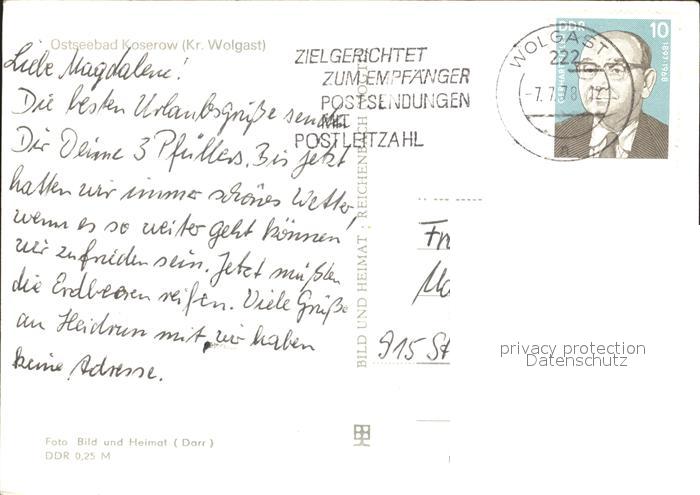 Ostseebad Koserow (Kr. Wolgast)
Liebe Magdalene!
Die besten Urlaubsgrüße senden
Dir Deine 3 Pfüllers. Bis jetzt
hatten wir immer schönes Wetter,
wenn es so weiter geht können
wir zufrieden sein. Jetzt müßten
die Erdbeeren reifen. Viele Grüße
an Heidrun mit, wir haben
keine Adresse.
Foto Bild und Heimat (Darr)
DDR 0,25 M
ZIELGERICHTET
ZUM EMPFÄNGER
POSTSENDUNGEN
MIT
POSTLEITZAHL
BILD UND HEIMAT · REICHENBACH
WOLGAST
222
-7.7.78
DDR
10
1897-1968
915 St
privacy protection
Datenschutz